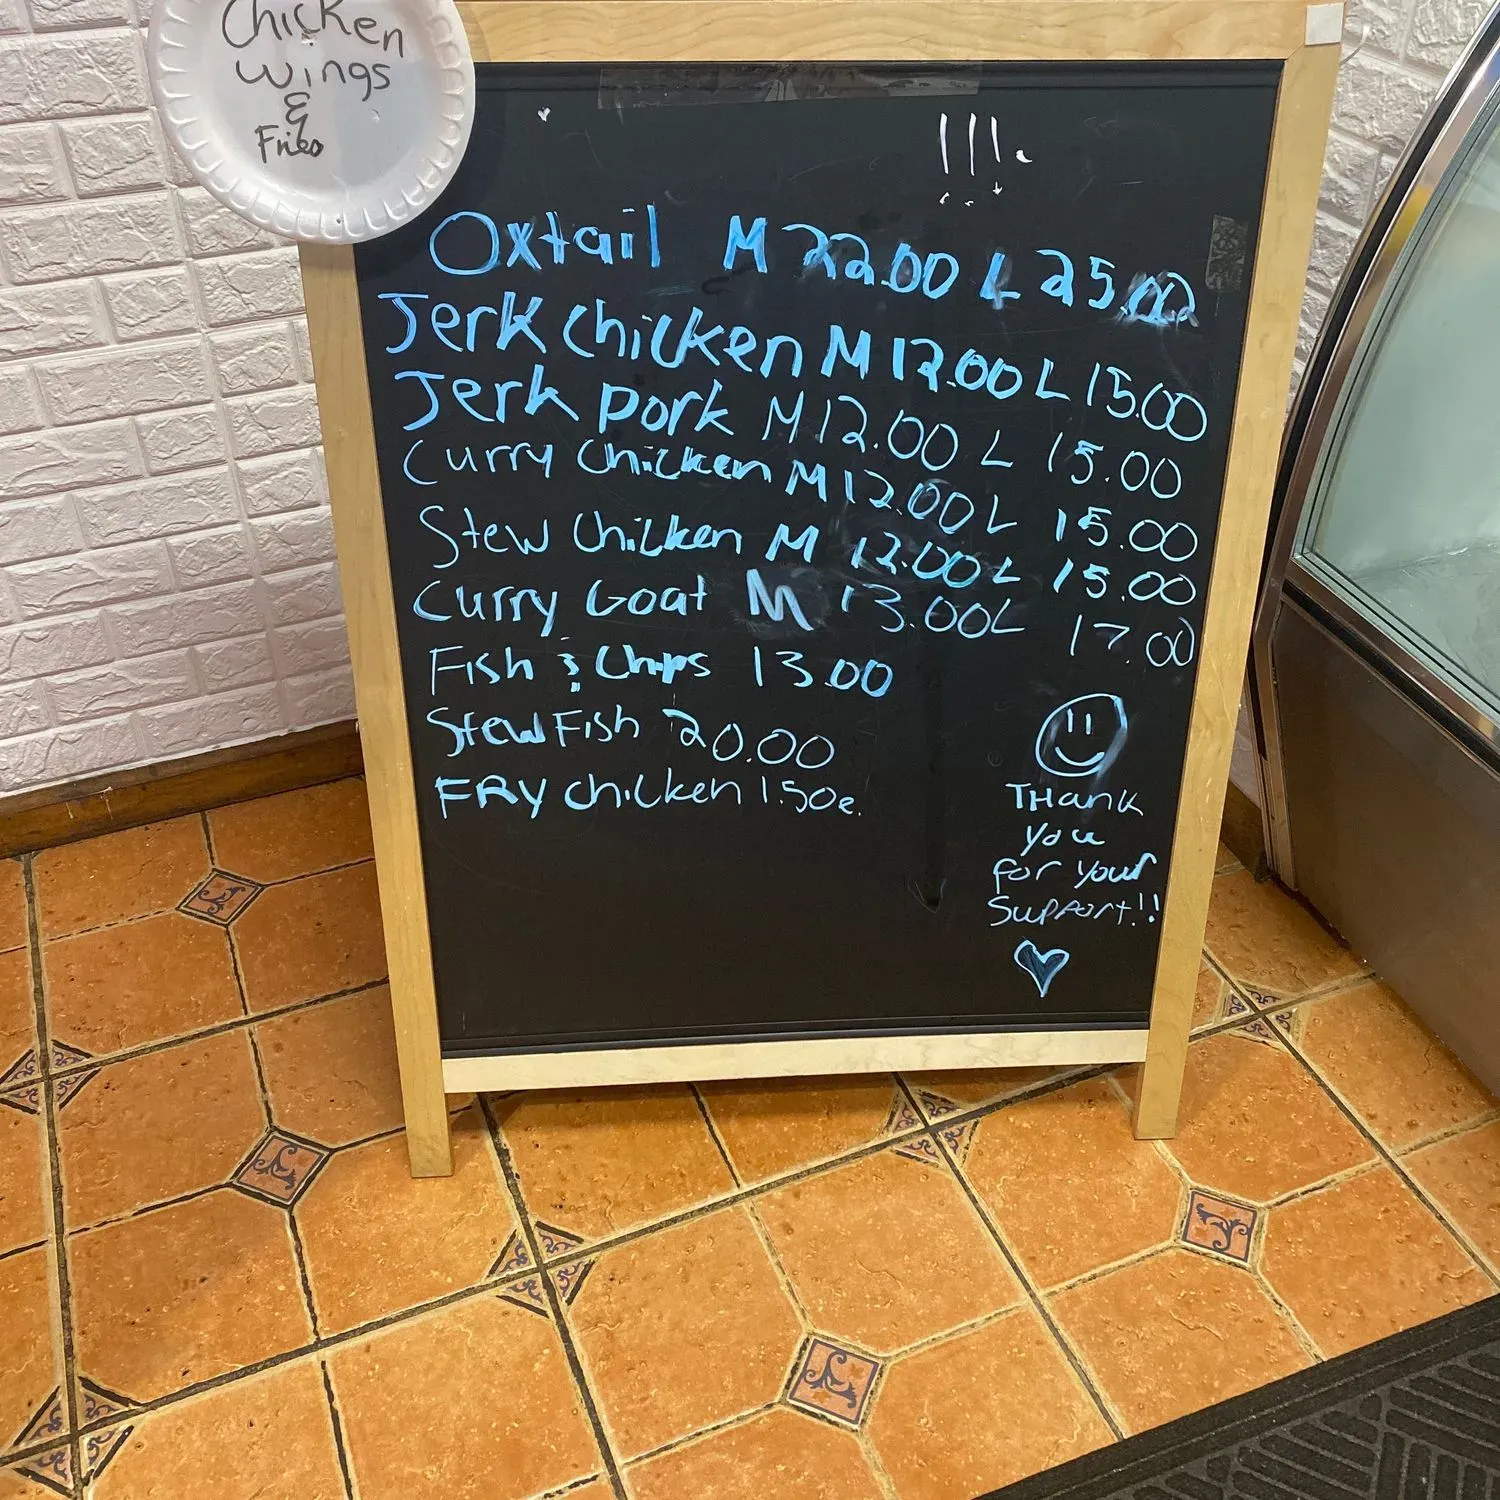 Chicken
Wings
&
Fries
!!!.
Oxtail M 22.00 L 25.00
Jerk chicken M 12.00 L 15.00
Jerk pork M 12.00 L 15.00
Curry Chicken M 12.00 L 15.00
Stew Chicken M 12.00 L 15.00
Curry Goat M 13.00 L 17.00
Fish & Chips 13.00
Stew Fish 20.00
FRY chicken 1.50e.
THank
you
for your
Support!!